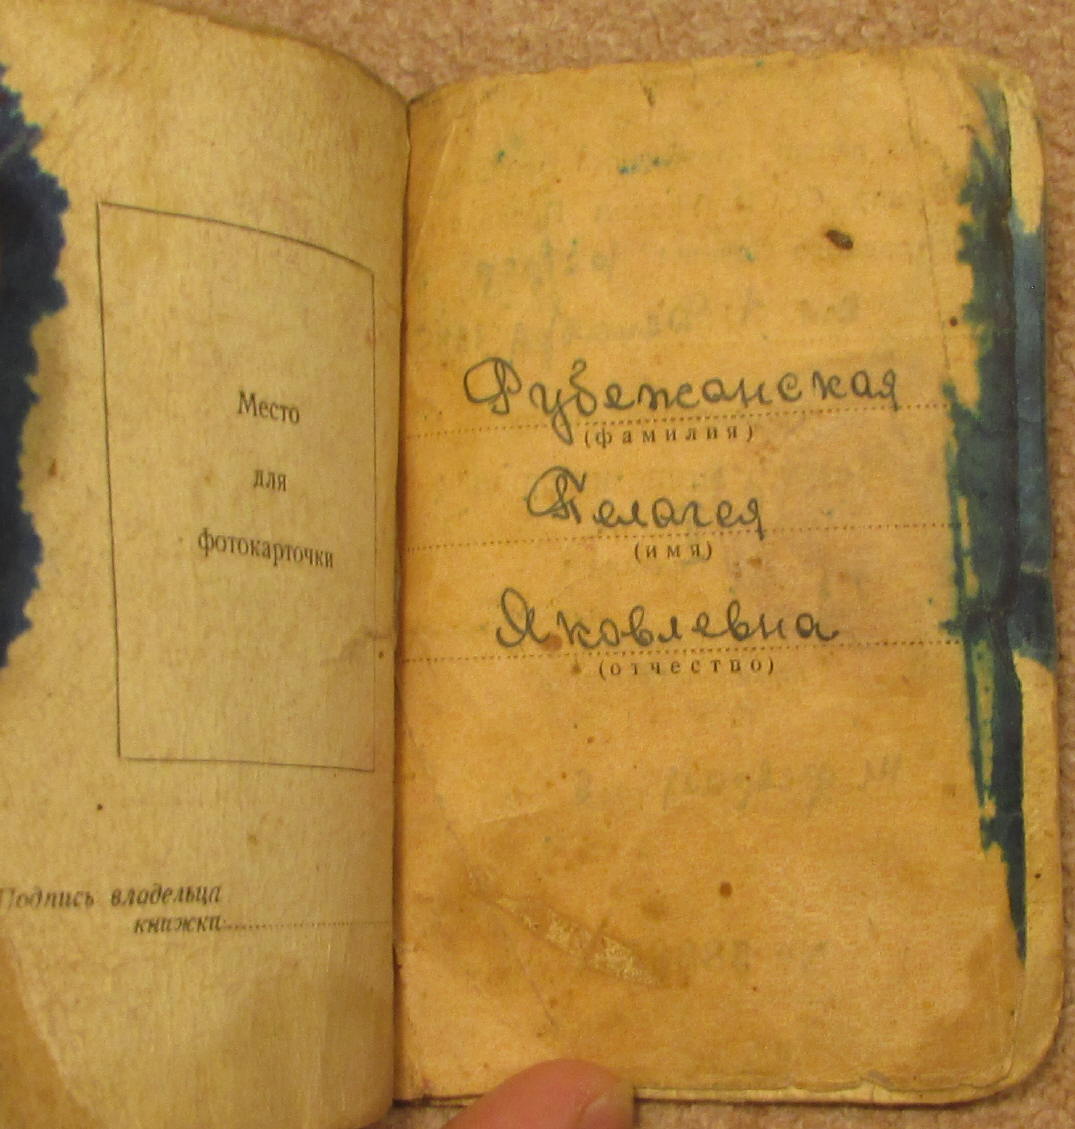 Место
для
фотокарточки
Подпись владельца
книжки
Рубежанская
(фамилия)
Пелагея
(имя)
Яковлевна
(отчество)